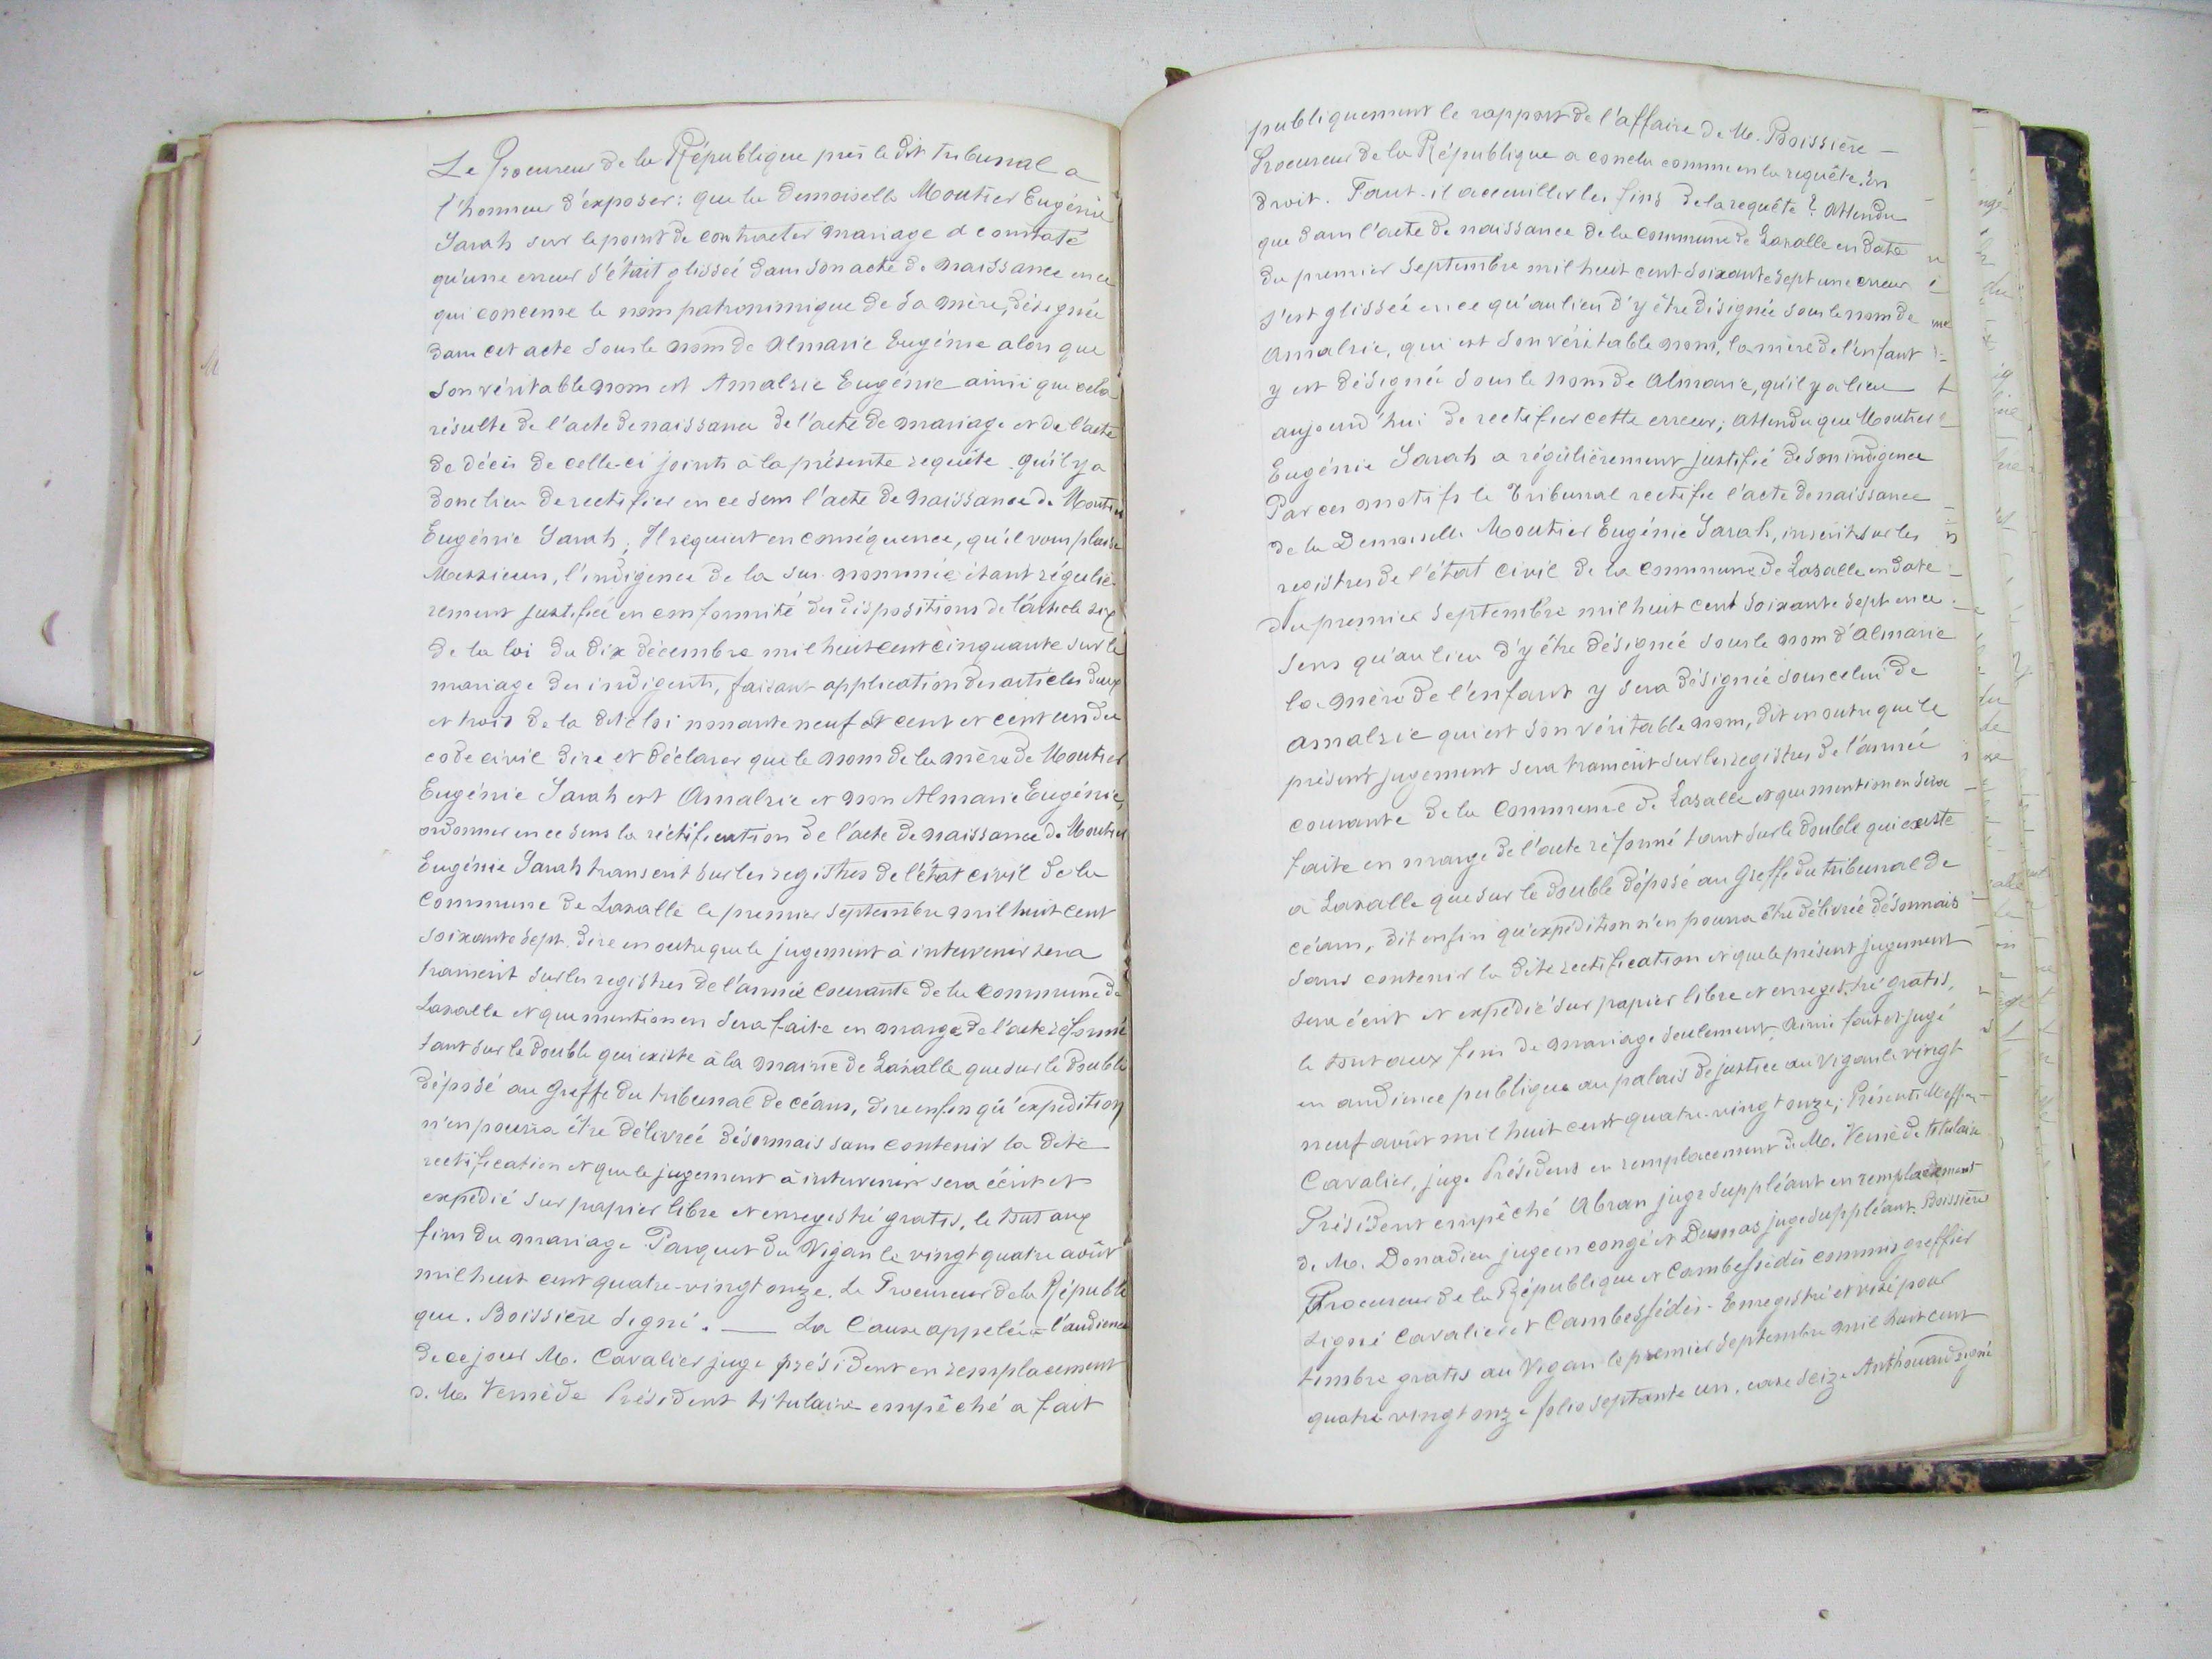 Le Procureur de la République près le dit tribunal a
l'honneur d'exposer: que la demoiselle Moutier Eugénie
Sarah sur le point de contracter mariage a constaté
qu'une erreur s'était glissée dans son acte de naissance en ce
qui concerne le nom patronimique de sa mère, désignée
dans cet acte sous le nom de Almaric Eugénie alors que
son véritable nom est Amalric Eugénie ainsi que cela
résulte de l'acte de naissance de l'acte de mariage et de l'acte
de décès de celle-ci joints à la présente requête. qu'il y a
donc lieu de rectifier en ce sens l'acte de naissance de Moutier
Eugénie Sarah; Il requiert en conséquence, qu'il vous plaise
Messieurs, l'indigence de la sus nommée étant réguliè
rement justifiée en conformité des dispositions de l'article six
de la loi du dix décembre mil huit cent cinquante sur le
mariage des indigents, faisant application des articles deux
et trois de la dite loi nonante neuf et cent et cent un du
code civil dire et déclarer que le nom de la mère de Moutier
Eugénie Sarah est Amalric et non Almaric Eugénie,
ordonner en ce sens la réctification de l'acte de naissance de Moutier
Eugénie Sarah transcrit sur les registres de l'état civil de la
Commune de Lasalle le premier septembre mil huit cent
soixante sept. dire en outre que le jugement à intervenir sera
transcrit sur les registres de l'année courante de la commune de
Lasalle et que mention en sera faite en marge de l'acte réformé
tant sur le double qui existe à la mairie de Lasalle que sur le double
déposé au Greffe du tribunal de céans, dire enfin qu'expédition
n'en pourra être délivrée désormais sans contenir la dite
rectification et que le jugement à intervenir sera écrit et
expédié sur papier libre et enregistré gratis, le tout aux
fins du mariage. Parquet du Vigan le vingt quatre août
mil huit cent quatre-vingt onze. Le Procureur de la Républi
que. Boissière signé. — La Cause appelée à l'audience
de ce jour M. Cavalier juge président en remplacement
de M. Vernède Président titulaire empêché a fait
publiquement le rapport de l'affaire de M. Boissière —
Procureur de la République a conclu comme en la requête. En
droit. Faut-il acceuillir les fins de la requête? Attendu
que dans l'acte de naissance de la commune de Lasalle en date
du premier septembre mil huit cent soixante sept une erreur
s'est glissée en ce qu'au lieu d'y être désignée sous le nom de
Amalric, qui est son véritable nom, la mère de l'enfant
y est désignée sous le nom de Almaric, qu'il y a lieu
aujourd'hui de rectifier cette erreur; attendu que Moutier
Eugénie Sarah a régulièrement justifié de son indigence
Par ces motifs le Tribunal rectifie l'acte de naissance
de la Demoiselle Moutier Eugénie Sarah, inscrit sur les
registres de l'état civil de la commune de Lasalle en date
du premier septembre mil huit cent soixante sept en ce
sens qu'au lieu d'y être désignée sous le nom d'Almaric
la mère de l'enfant y sera désignée sous celui de
Amalric qui est son véritable nom, dit en outre que le
présent jugement sera transcrit sur les registres de l'année
courante de la Commune de Lasalle et que mention en sera
faite en marge de l'acte réformé tant sur le double qui existe
à Lasalle que sur le double déposé au Greffe du tribunal de
céans, dit enfin qu'expédition n'en pourra être délivrée désormais
sans contenir la dite rectification et que le présent jugement
sera écrit et expédié sur papier libre et enregistré gratis,
le tout aux fins de mariage seulement. Ainsi fait et jugé
en audience publique au palais de justice au Vigan le vingt
neuf août mil huit cent quatre-vingt onze; Présents Mess
Cavalier, juge Président en remplacement de M. Vernède titulaire
Président empêché Abran juge suppléant en remplacement
de M. Donadieu juge en congé et Dumas juge suppléant. Boissière
Procureur de la République et Cambessédès commis greffier
Signé Cavalier et Cambessédès. Enregistré et visé pour
timbre gratis au Vigan le premier septembre mil huit cent
quatre vingt onze folio septante un, case seize Anthouard signé